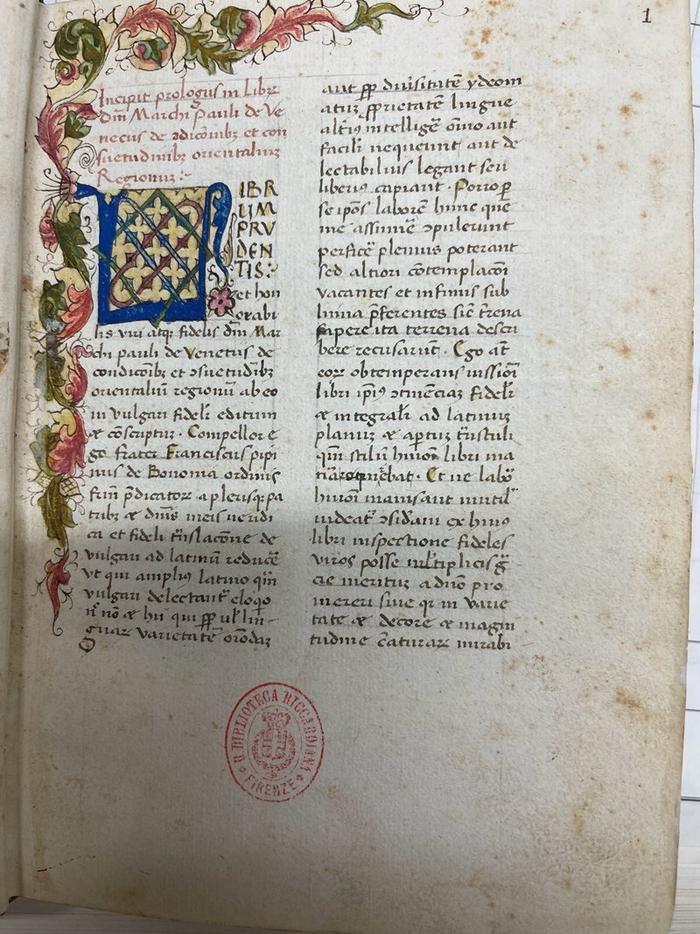 1
Incipit prologus in Libr̃
dñi Marchi Pauli de Ve
necijs de ɔdicoibꝫ et con
suetudinibꝫ orientaliuꝫ
Regionuꝫ :
LIBR
UM
PRU
DEN
TIS :
et hon
orabi
lis viri atqꝫ fidelis dñi Mar
chi pauli de Venetijs de
condicoibꝫ et ɔsuetudĩbꝫ
orientaliũ regionũ ab eo
in vulgari fidelr̃ editum
et cõscriptuꝫ . Compellor e
go frater Franciscus pipi
nus de Bononia ordinis
frũm p̃dicatoꝝ a pleusqꝫ pa
tribꝫ et dñis meis veridi
ca et fideli trãslacõne de
vulgari ad latinũ reducẽ
vt qui ampliꝰ latino qᷓm
vulgari delectant᷑ eloqo
nõ et hij qui ꝓp̃ vel lin
guaꝝ varietatẽ oi̅odaꝫ
aut ꝓp̃ diũsitatẽ ydeom
atuꝫ ꝓprietatẽ lingue
altiꝰ intelligẽ oi̅no aut
facilr̃ nequeunt aut de
lectabiliꝰ legant seu
liberiꝰ capiant . Porro ꝑ
se ip̃os laborẽ hunc que
me assumẽ ɔpulerunt
perficẽ pleniꝰ poterant
sed altiori cõtemplacõi
vacantes et infimis sub
limia p̃ferentes sic̃ t̾rena
sapere ita terrena descri
bere recusarunt . Ego aũt
eoꝝ obtemperans iussioĩ
libri ip̃iꝰ ɔtinenciaꝫ fidelr̃
et integralr̃ ad latinuꝫ
planuꝫ et aptuꝫ trãstuli
qm̃ stilũ huiꝰ libri ma
. Et ne labõ
huiꝰmõi inutil᷑
videat᷑ ɔsid̾aui ex huiꝰ
libri inspectione fideles
viros posse multiplicis gᷓ
cie meritũ a dño pro
mereri siue qꝛ in varie
tate et decore et magni
tudine c̾aturaꝝ mirabi
R BIBLIOTECA RICCARDIANA
FIRENZE